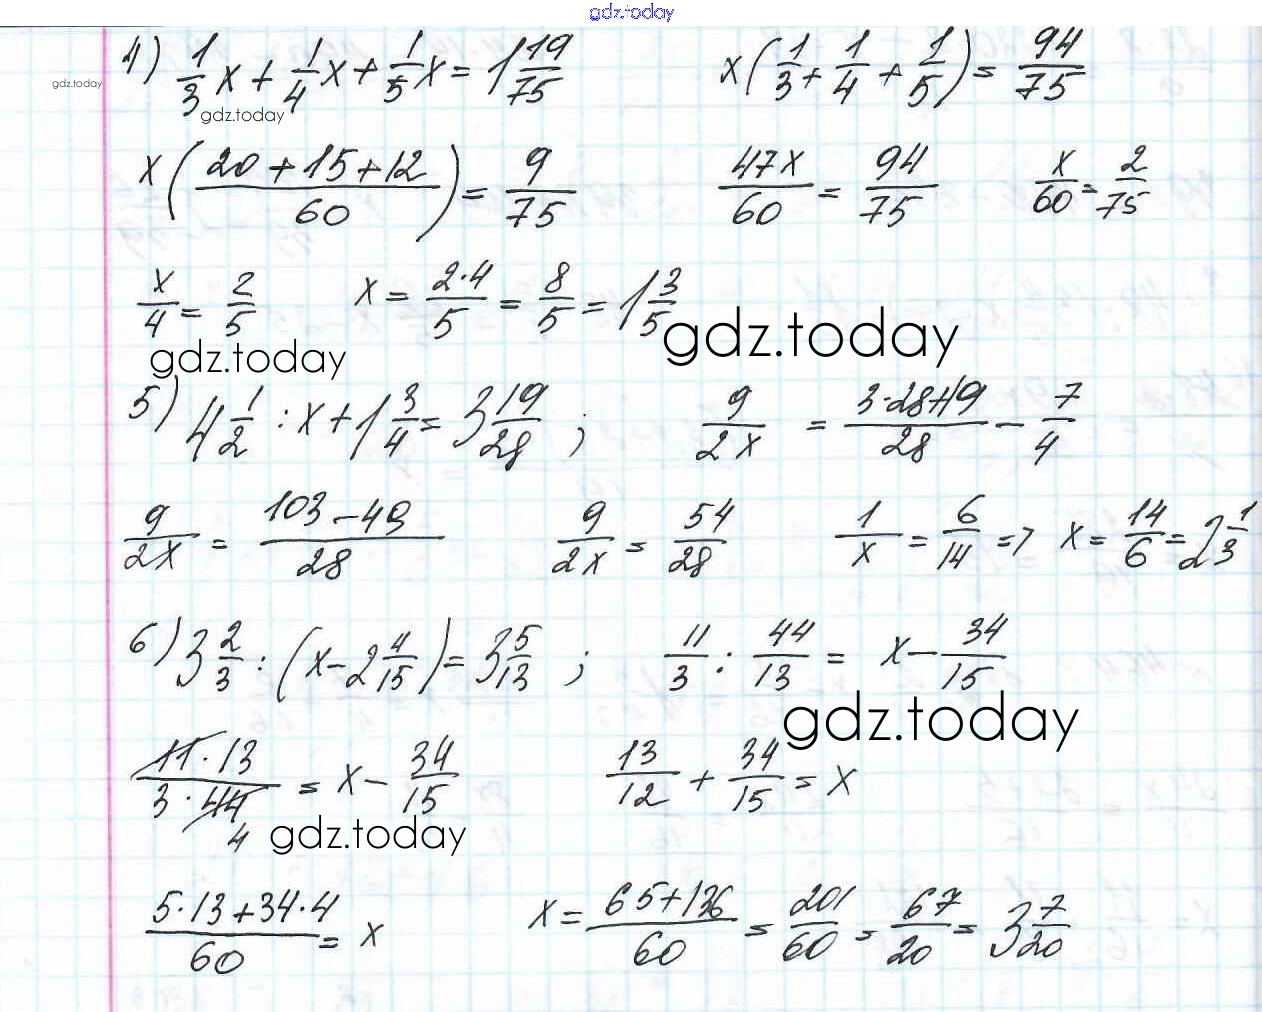 gdz.today
4) 1/3 x + 1/4 x + 1/5 x = 1 19/75 x(1/3 + 1/4 + 1/5) = 94/75
gdz.today
gdz.today
x((20+15+12)/60) = 9/75 47x/60 = 94/75 x/60 = 2/75
x/4 = 2/5 x = 2·4/5 = 8/5 = 1 3/5
gdz.today
gdz.today
5) 4 1/2 : x + 1 3/4 = 3 19/28 ; 9/2x = (3·28+19)/28 - 7/4
9/2x = (103-49)/28 9/2x = 54/28 1/x = 6/14 => x = 14/6 = 2 1/3
6) 3 2/3 : (x - 2 4/15) = 3 5/13 ; 11/3 : 44/13 = x - 34/15
gdz.today
11·13/3·44 = x - 34/15 13/12 + 34/15 = x
4
gdz.today
(5·13+34·4)/60 = x x = (65+136)/60 = 201/60 = 67/20 = 3 7/20